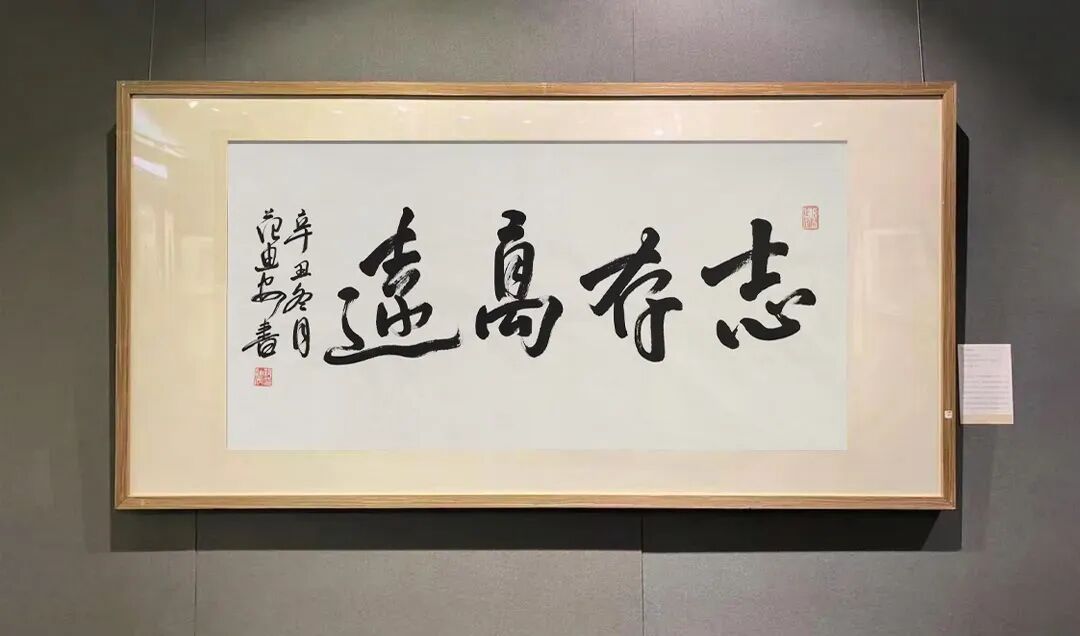 志存高遠
辛丑冬月
范迪安書